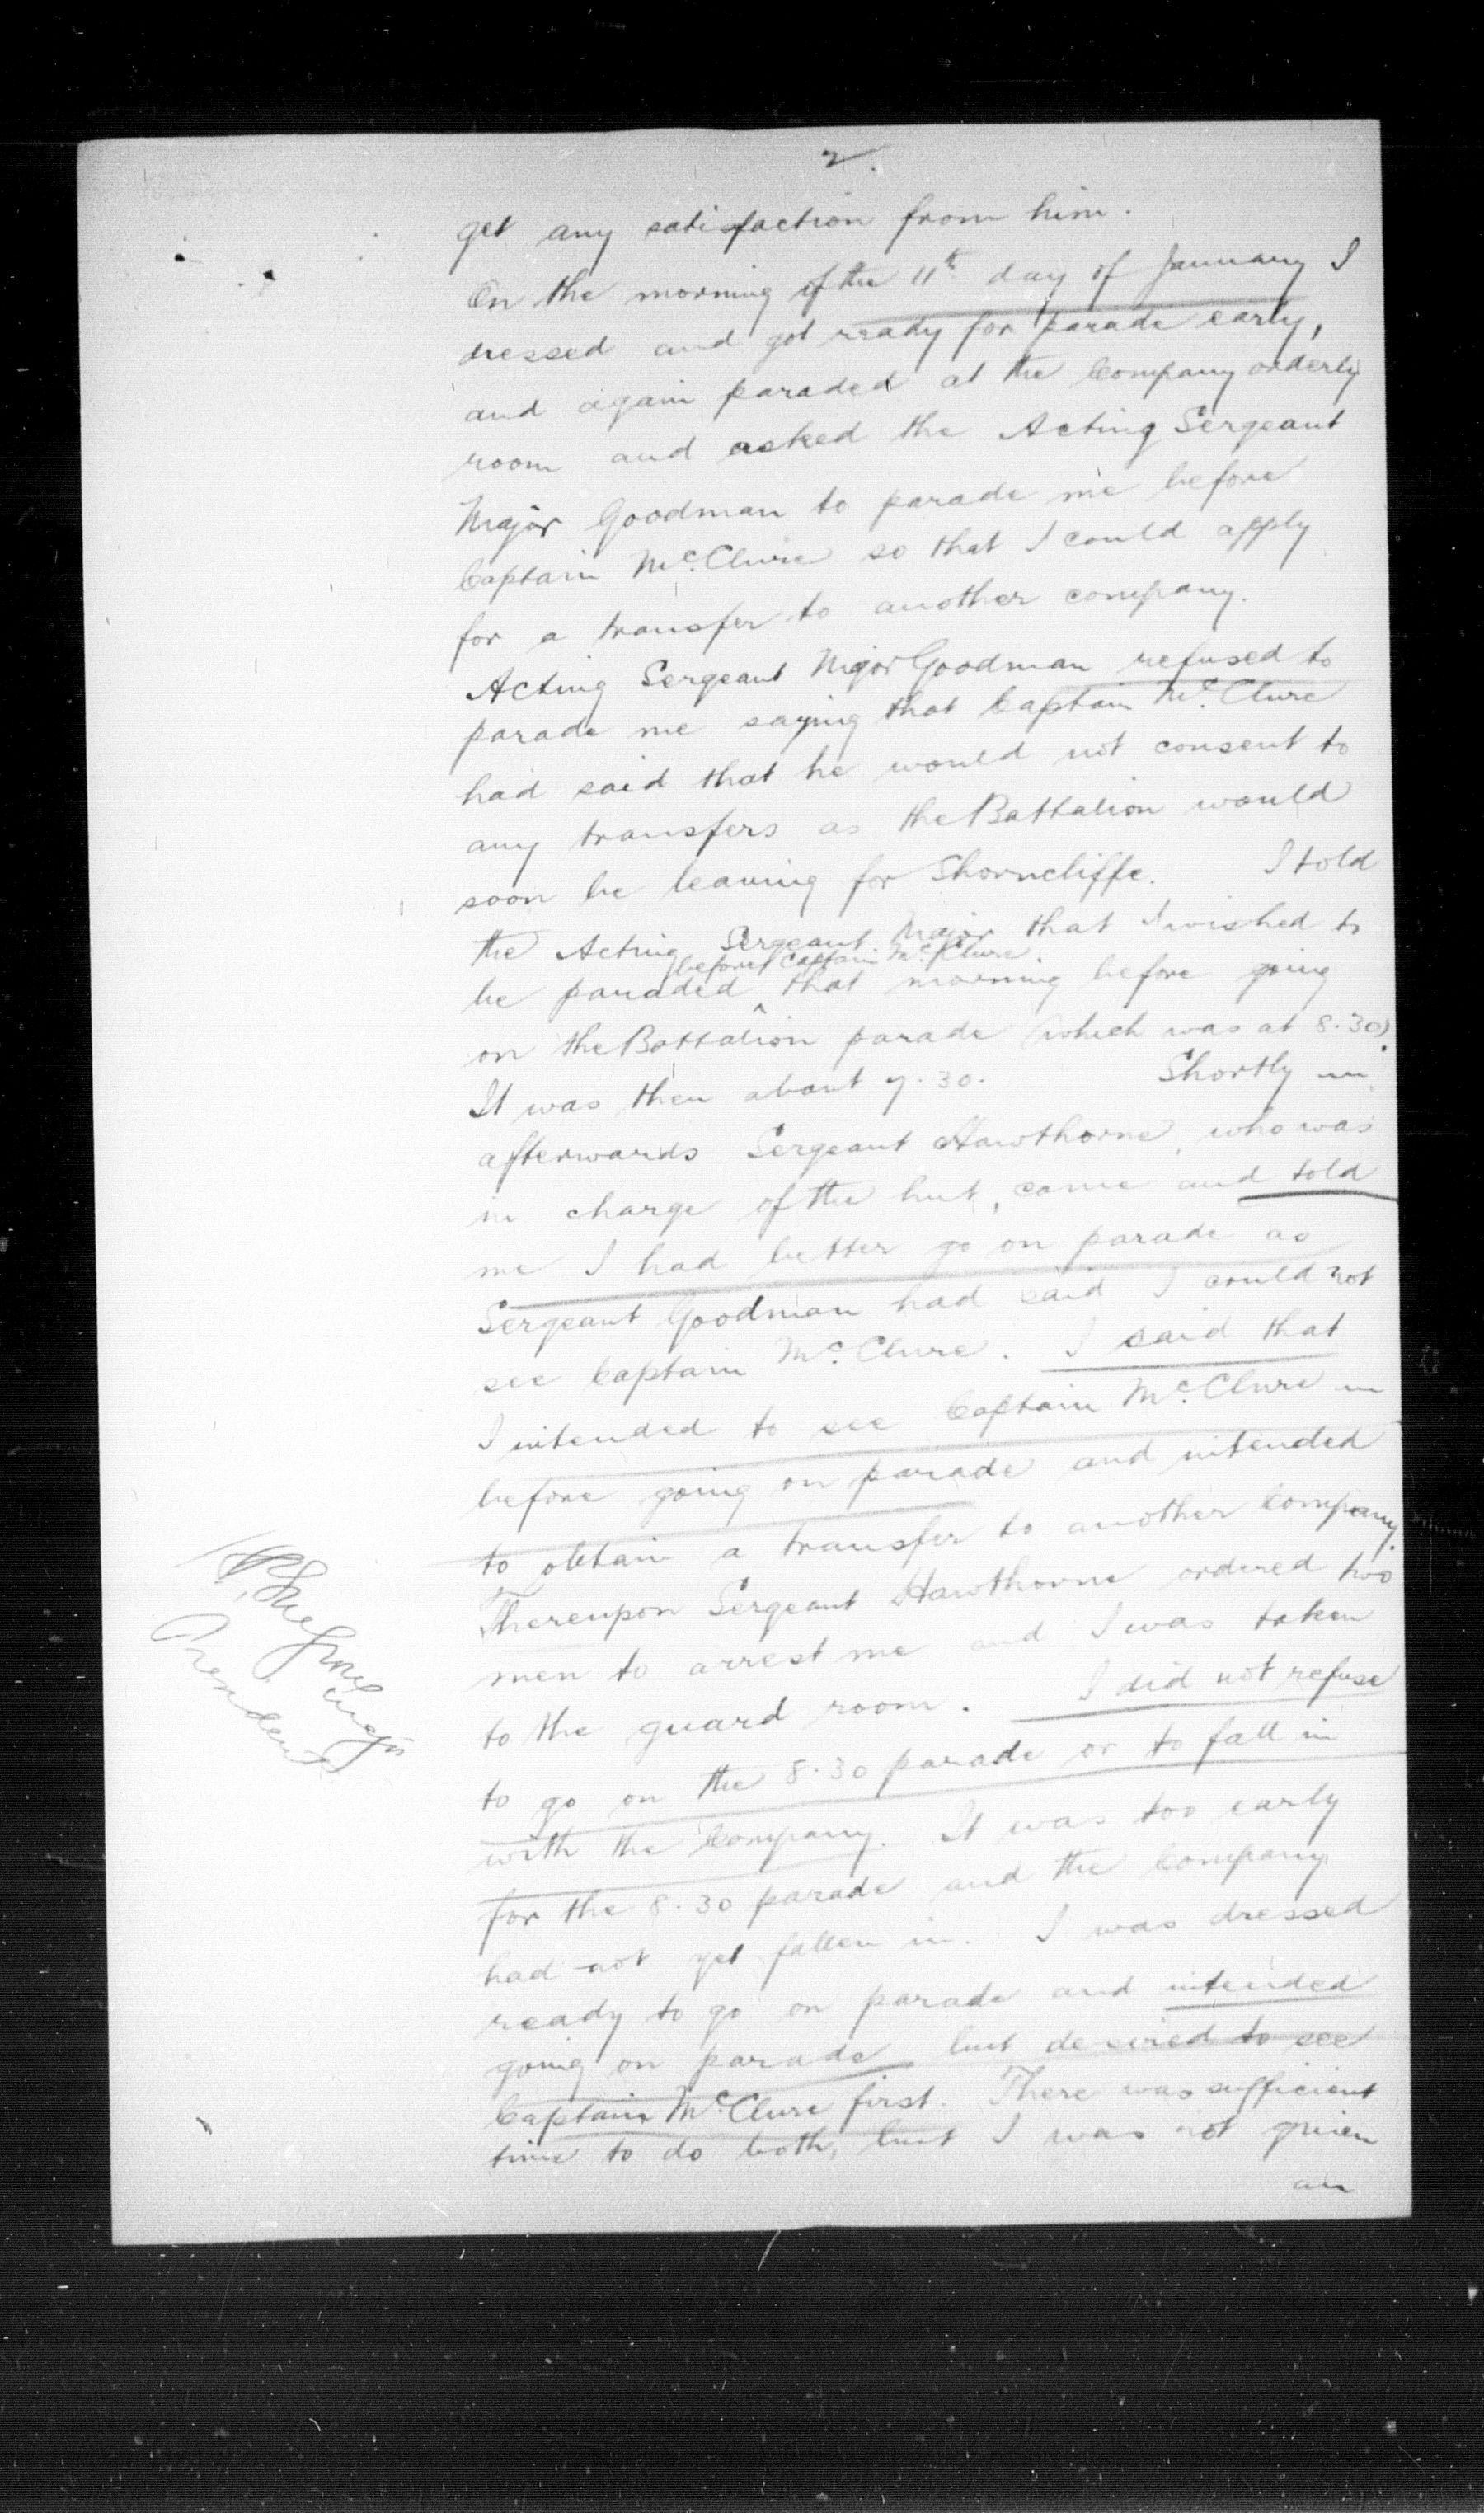 2.
get any satisfaction from him.
On the morning of the 11th day of January I
dressed and got ready for parade early,
and again paraded at the Company orderly
room and asked the Acting Sergeant
Major Goodman to parade me before
Captain McClure so that I could apply
for a transfer to another company.
Acting Sergeant Major Goodman refused to
parade me saying that Captain McClure
had said that he would not consent to
any transfers as the Battalion would
soon be leaving for Shorncliffe. I told
the Acting Sergeant Major that I wished to
before Captain McClure
be paraded ^ that morning before going
on the Battalion parade (which was at 8.30).
It was then about 7.30. Shortly
afterwards Sergeant Hawthorne, who was
in charge of the hut, came and told
me I had better go on parade as
Sergeant Goodman had said I could not
see Captain McClure. I said that
I intended to see Captain McClure
before going on parade and intended
to obtain a transfer to another Company.
Thereupon Sergeant Hawthorne ordered two
men to arrest me and I was taken
to the guard room. I did not refuse
to go on the 8.30 parade or to fall in
with the Company. It was too early
for the 8.30 parade and the Company
had not yet fallen in. I was dressed
ready to go on parade and intended
going on parade but desired to see
Captain McClure first. There was sufficient
time to do both, but I was not given
an
Major
President